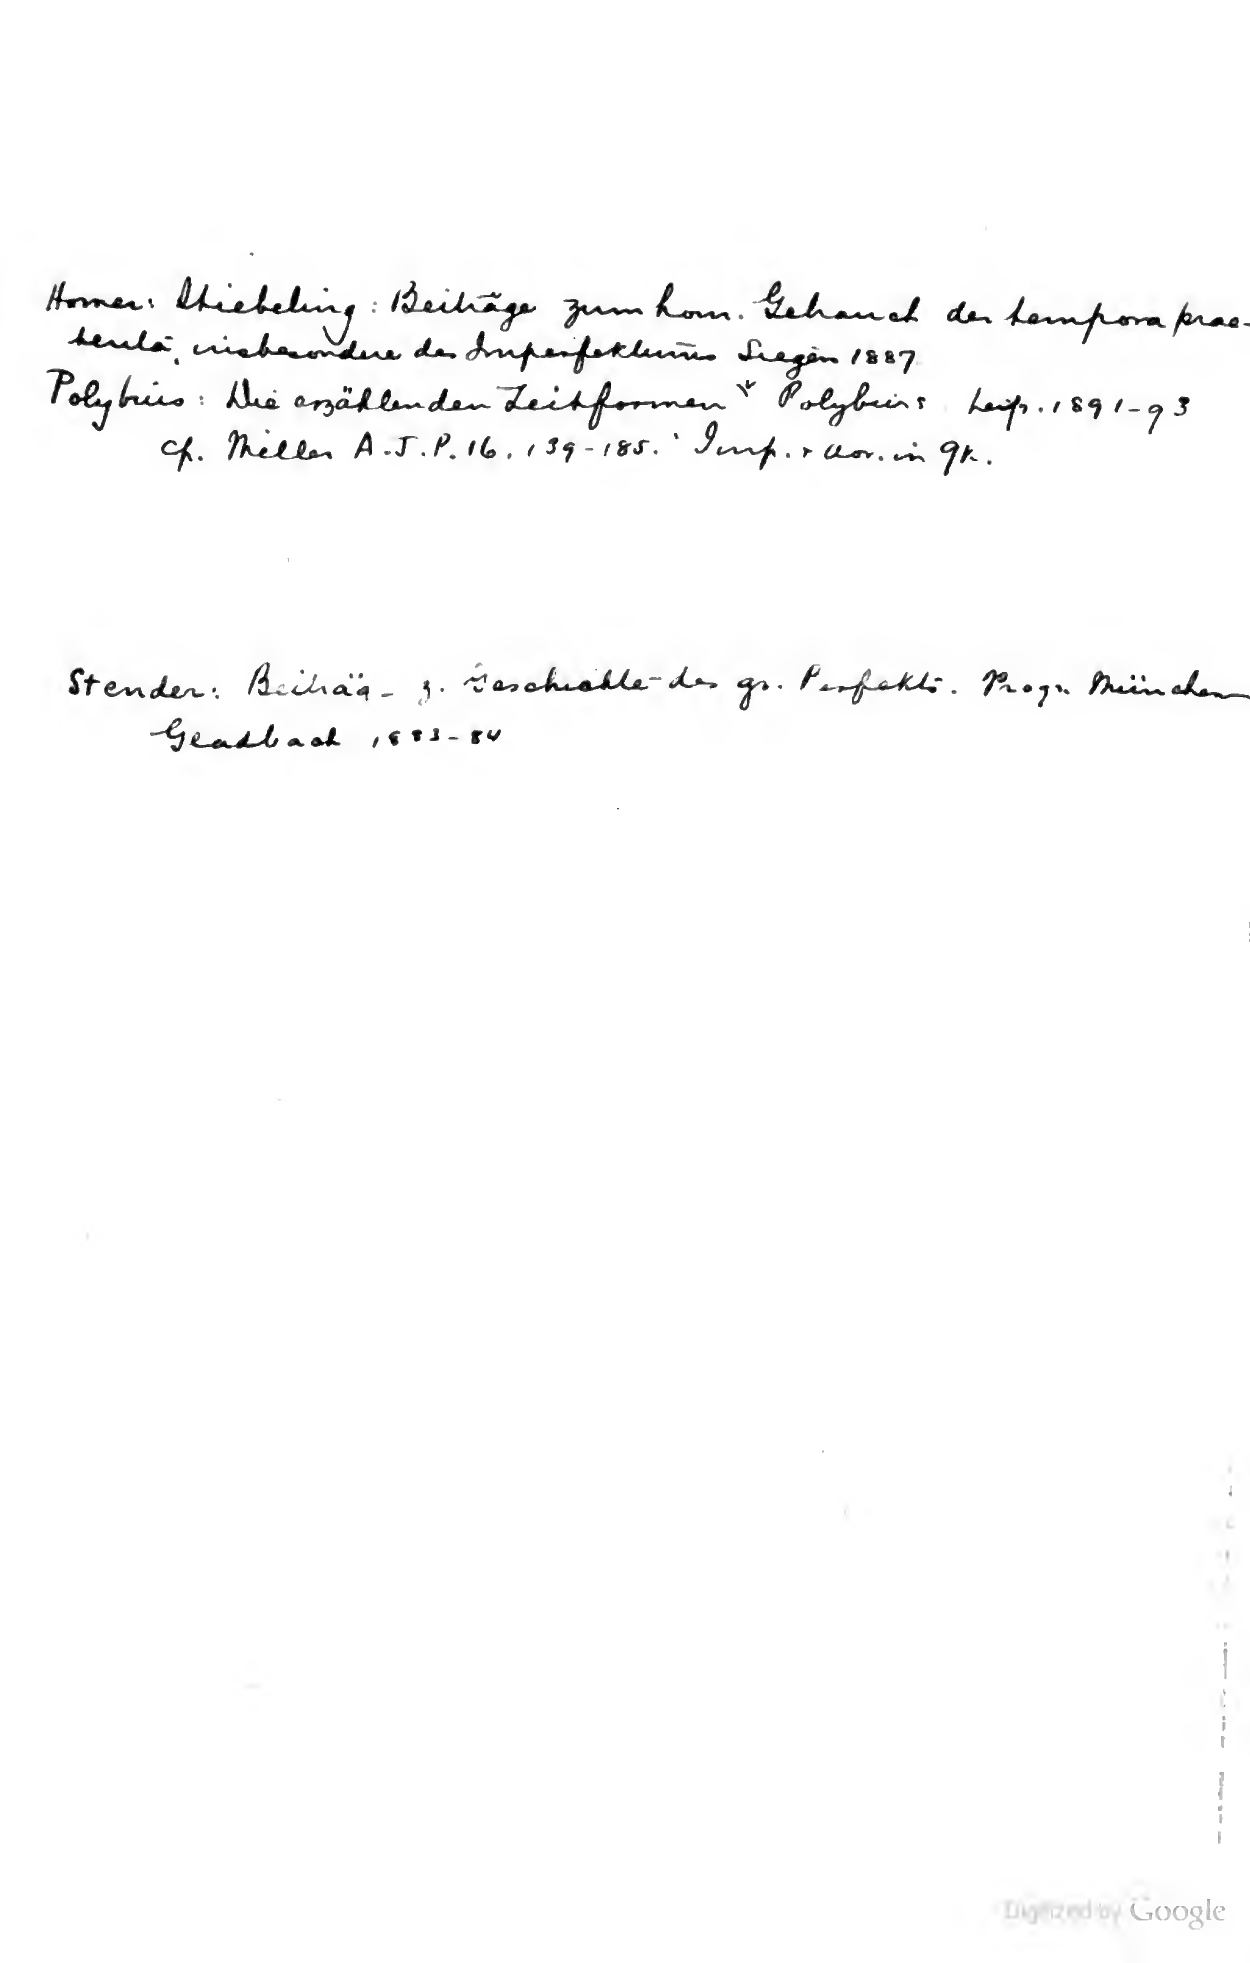 Homer: Stiebeling: Beiträge zum hom. Gebrauch der tempora prae-
terita, insbesondere des Imperfektums Siegen 1887
Polybius: Die erzählenden Zeitformen Polybius Leip. 1891-93
cf. Miller A.J.P. 16. 139-185. Imp. + Aor. in Gk.
Stender: Beiträg- z. Geschichte des gr. Perfekts. Progr. München
Gladbach 1883-84
Digitized by Google